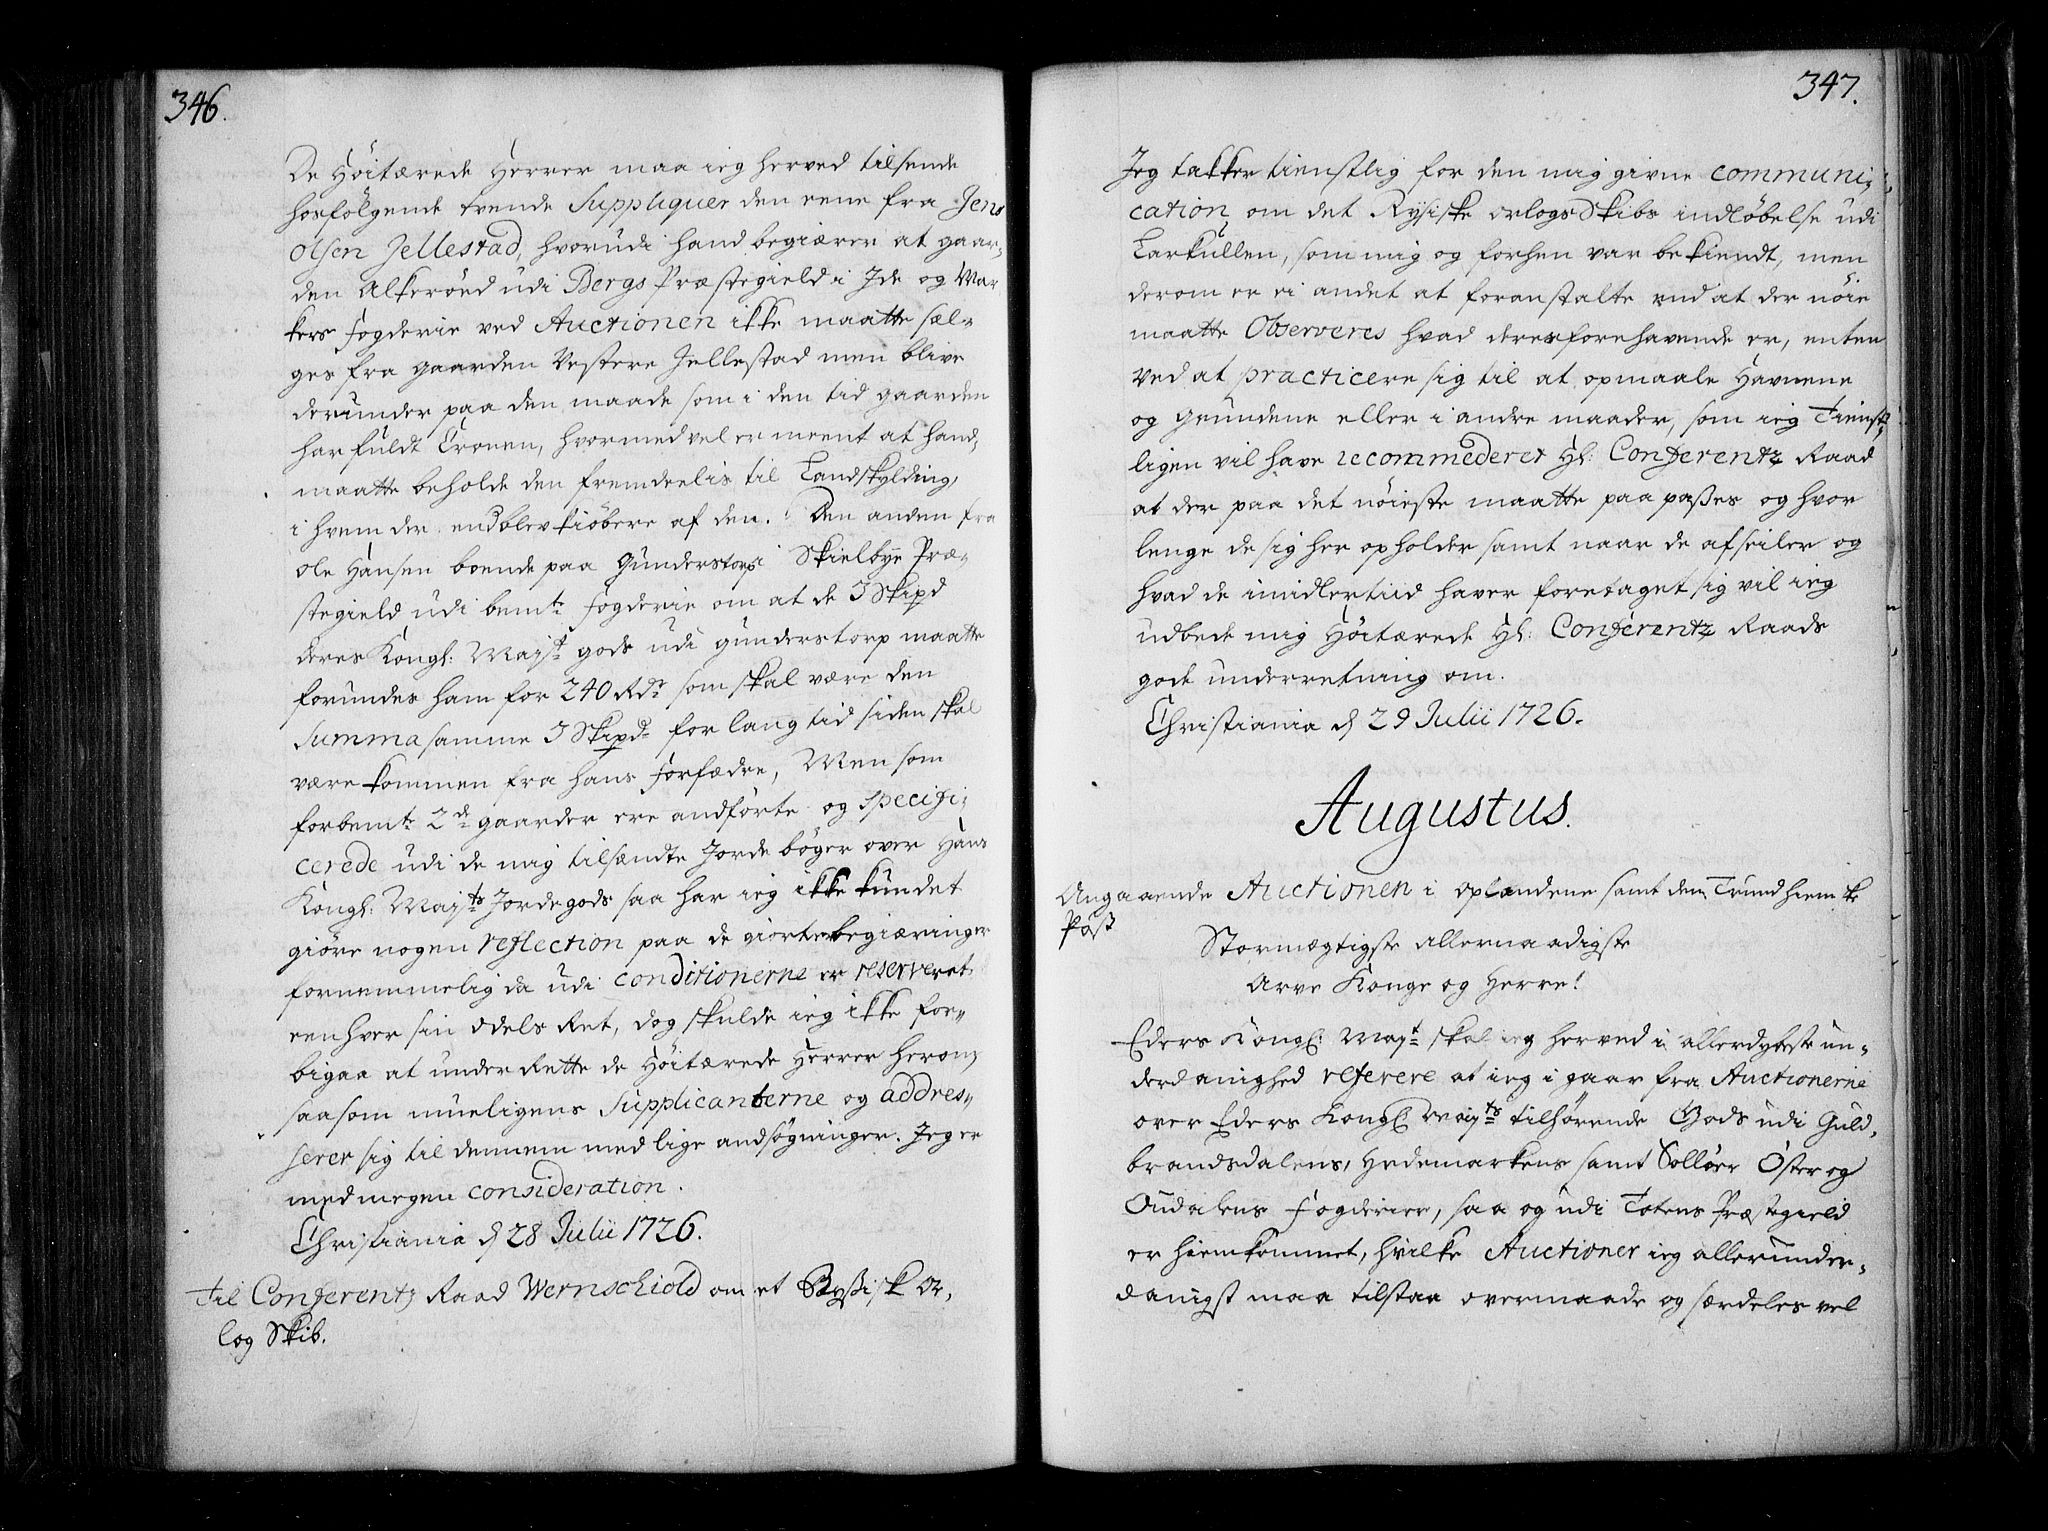 346.
De Höitærede Herrer maa ieg herved tilsende
hosfölgende tvende Suppliquer den eene fra Jens
Olsen Jellestad, hvorudi hand begiærer at gaar-
den Alkeröed udi Bergs Præstegield i Jde og Mar
kers fogderie ved Auctionen ikke maatte sæl-
ges fra gaarden Vestere Jellestad men blive
derunder paa den maade som i den tid gaarden
har fuldt Cronen, hvormed vel er meent at hand,
maatte beholde den fremdeelis til Landskylding,
i hvem der endblev kiöbere af den. Den anden fra
Ole Hansen boende paa Gunderstorp i Skielbye Præ-
stegield udi bemte fogderie om at de 3 Skipd
deres Kongl: Mayts gods udi gunderstorp maatte
forundes ham for 240 Rdr som skal være den
Summa samme 3 Skipd for lang tid siden skal
være kommen fra hans forfædre, Men som
forbemte 2de gaarder ere andförte og specifi-
cerede udi de mig tilsændte Jorde böger over Hans
Kongl: Mayts Jordegods saa har ieg ikke kundet
giöre nogen reflection paa de giorte begiæringer
fornemmelig da udi conditionerne er reserveret
eenhver sin odels Ret, dog skulde ieg ikke for-
bigaa at under Rette de Höitærede Herrer herom,
saasom mueligens Supplicanterne og addres-
serer sig til dennem med lige andsögninger. Jeg er
med megen consideration.
Christiania d 28 Julii 1726.
Til Conferentz Raad Wernschiold om et Ryssisk Or,
log Skib.
347.
Jeg takker tienstlig for den mig givne communi-
cation om det Rysiske orlogs Skibs indlöbelse udi
Larkullen, som mig og forhen var bekiendt, men
derom er ei andet at foranstalte end at der nöie
maatte Observeres hvad deres forehavende er, enten
ved at practicere sig til at opmaale Havnene
og grundene eller i andre maader, som ieg Tienst-
ligen vil have recommederet Hl: Conferentz Raad
at der paa det nöieste maatte paa passes og hvor
lenge de sig her opholder samt naar de afseiler og
hvad de imidlertiid haver foretaget sig vil ieg
udbede mig Höitærede Hl: Conferentz Raads
gode underretning om.
Christiania d 29 Julii 1726.
Augustus.
Angaaende Auctionen i oplandene samt den Trundhiemske
Post
Stormægtigste allernaadigste
Arve Konge og Herre!
Eders Kongl: Mayt skal ieg herved i allerdybeste un-
derdanighed referere at ieg i gaar fra Auctionerne
over Eders Kongl Mayts tilhörende Gods udi Guld-
brandsdalens, Hedemarkens samt Sollöer Öster og
Oudalens fogderier, saa og udi Totens Præstegield
er hiemkommet, hvilke Auctioner ieg allerunder-
danigst maa tilstaa overmaade og særdeles vel